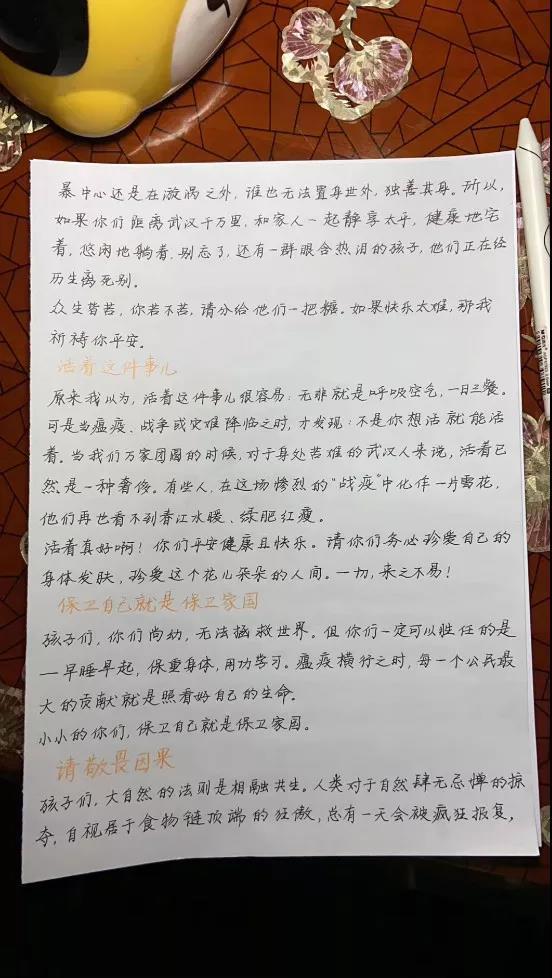 暴中心还是在漩涡之外，谁也无法置身世外，独善其身。所以，
如果你们距离武汉千万里，和家人一起静享太平，健康地宅
着，悠闲地躺着，别忘了，还有一群眼含热泪的孩子，他们正在经
历生离死别。
众生皆苦，你若不苦，请分给他们一把糖。如果快乐太难，那我
祈祷你平安。
活着这件事儿
原来我以为，活着这件事儿很容易：无非就是呼吸空气，一日三餐。
可是当瘟疫、战争或灾难降临之时，才发现：不是你想活就能活
着。当我们万家团圆的时候，对于身处苦难的武汉人来说，活着已
然是一种奢侈。有些人，在这场惨烈的“战疫”中化作一片雪花，
他们再也看不到春江水暖、绿肥红瘦。
活着真好啊！你们平安健康且快乐。请你们务必珍爱自己的
身体发肤，珍爱这个花儿朵朵的人间。一切，来之不易！
保卫自己就是保卫家园
孩子们，你们尚幼，无法拯救世界。但你们一定可以胜任的是
——早睡早起，保重身体，用功学习。瘟疫横行之时，每一个公民最
大的贡献就是照看好自己的生命。
小小的你们，保卫自己就是保卫家园。
请敬畏因果
孩子们，大自然的法则是相融共生。人类对于自然肆无忌惮的掠
夺，自视居于食物链顶端的狂傲，总有一天会被疯狂报复，